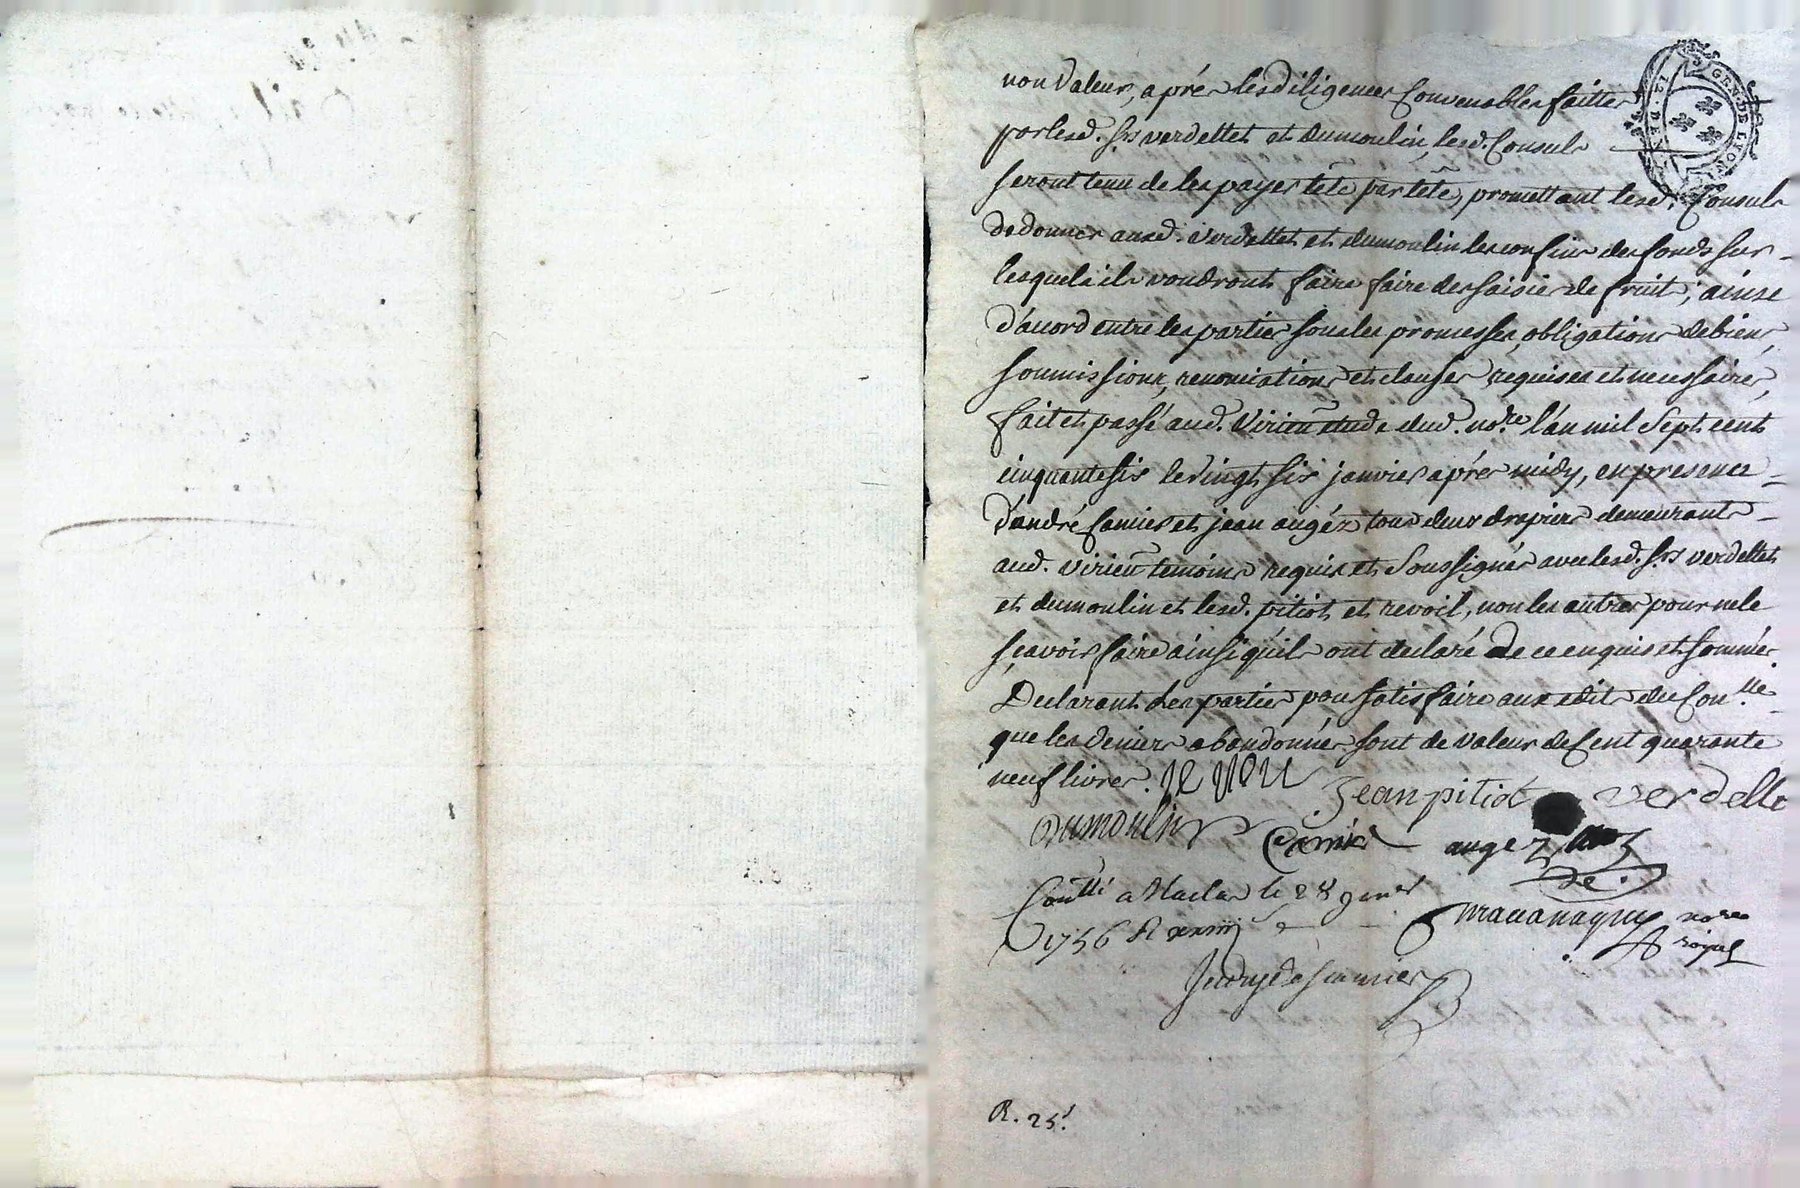 GEN. DE LYON
12. DEN.
non valeur, aprés les diligences Convenables faittes
par lesd. Srs verdellet et dumoulin, lesd. Consuls
seront tenu de les payer tête par tête, promettant lesd. Consuls
de donner ausd. verdellet et dumoulin les confins des fonds sur
lesquels ils voudront faire faire des saisies de fruit; ainsi
d'acord entre les parties sous les promesses, obligations de biens,
soumissions, renonciations et clauses requises et necessaires,
fait et passé aud. Virieu etude dud. no.re l'an mil sept cent
cinquante six le vingt six janvier aprés midy, en presence
d'andré Camier et jean augéz tous deux drapiers demeurants
aud. virieu temoins requis et soussignés avec lesd. Srs verdellet
et dumoulin et lesd. pitiot et revoil, non les autres pour ne le
sçavoir faire ainsi qu'ils ont declaré de ce enquis et sommés
Declarant les parties pour satisfaire aux edits du Con.lle
que les deniers abandonnés sont de valeur de Cent quarante
neuf livres.
Jean pitiot verdellet
Dumoulin Camier augez
Con.llé a le 28
1756 R
no.re
royal
R. 25.s